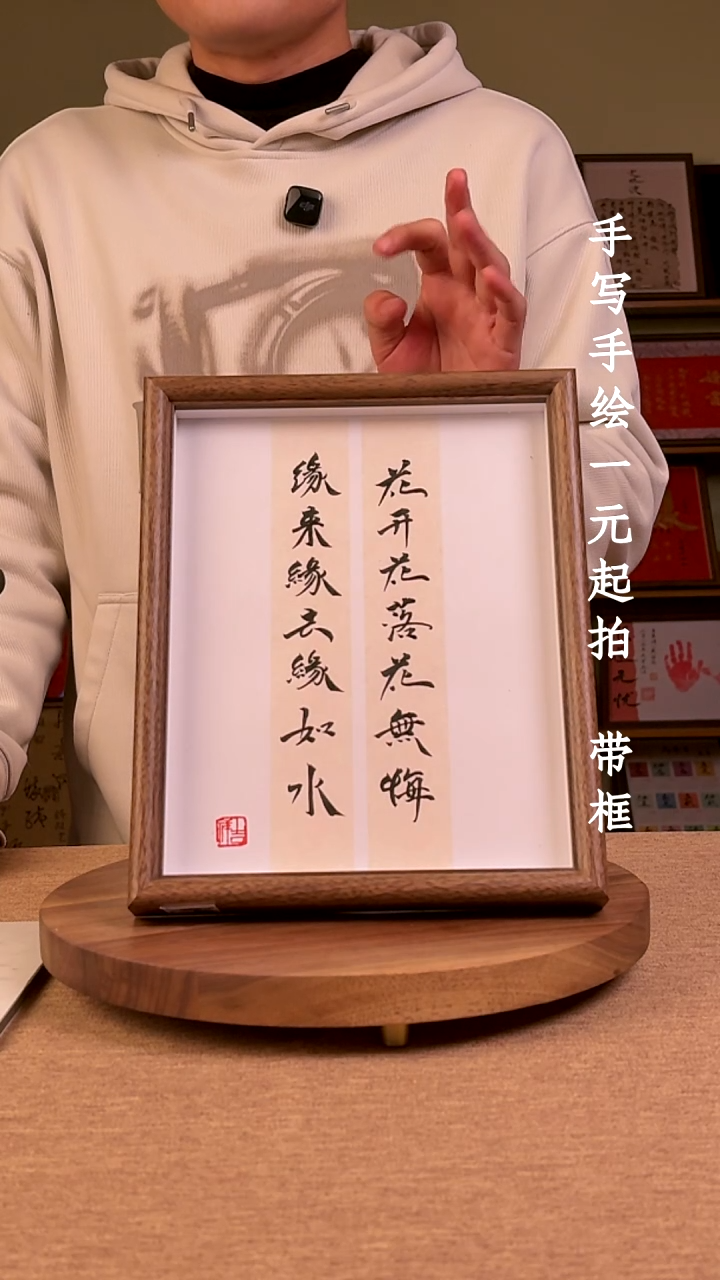 花开花落花無悔
缘来緣去緣如水
手写手绘一元起拍 带框